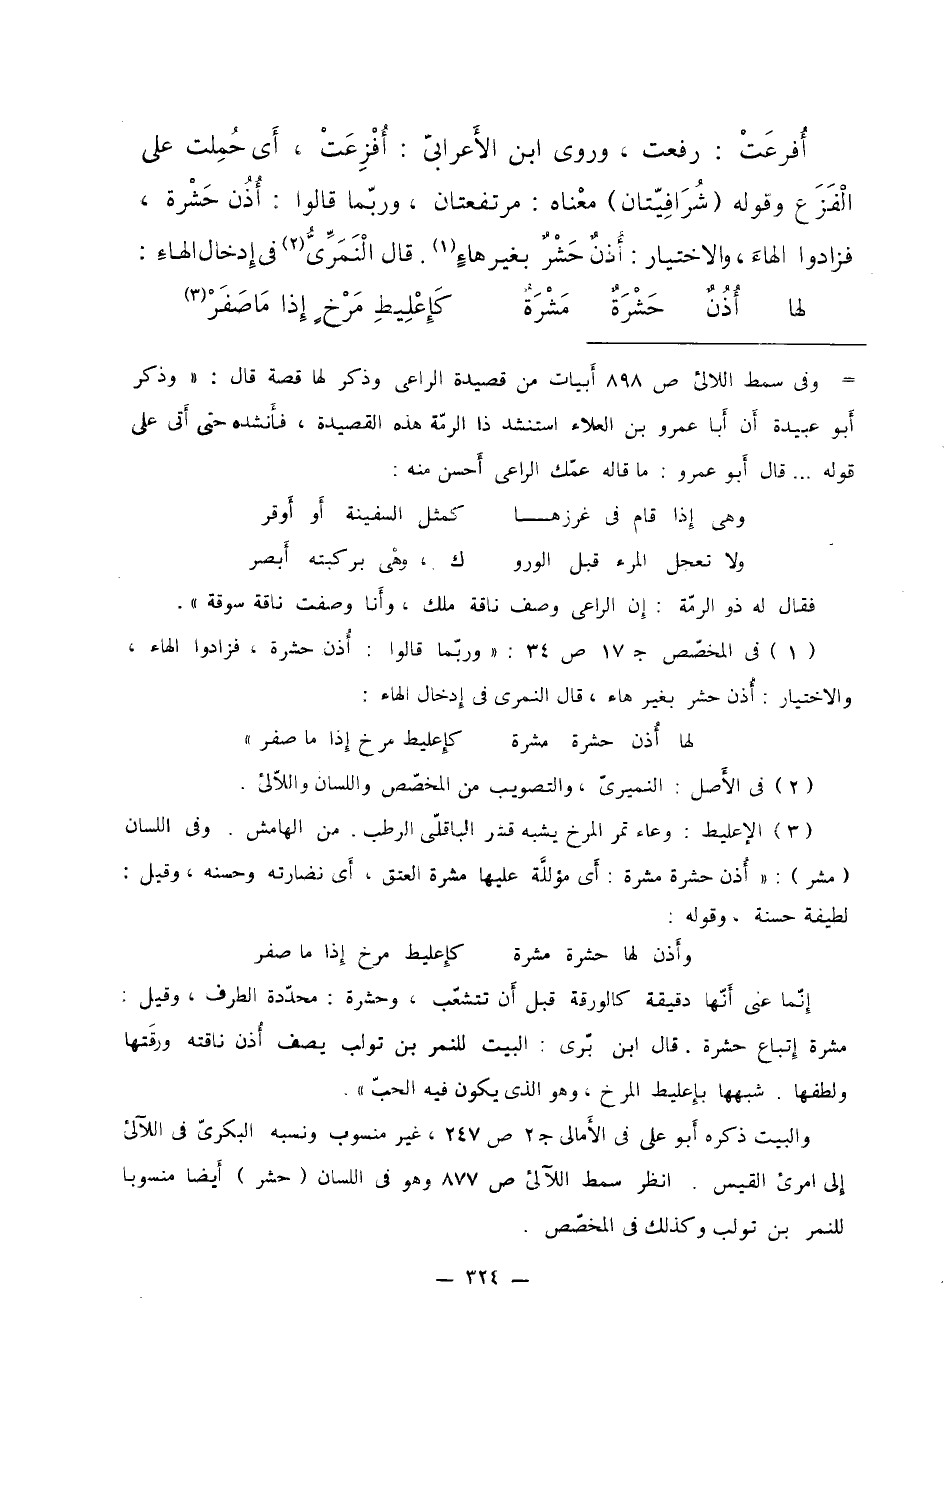 أُفرعَتْ : رفعت ، وروى ابن الأَعرابىّ : أُفْزِعَتْ ، أَى حُمِلت على
الْفَزَع وقوله (شُرَافِيّتان) معْناه : مرتفعتان ، وربّما قالوا : أُذُن حَشْرة ،
فزادوا الهاءَ ، والاختيار : أُذنٌ حَشْرٌ بغير هاءٍ(١) . قال النَّمَرِىُّ(٢) فى إدخال الهاءِ :
لها أُذُنٌ حَشْرَةٌ مَشْرَةٌ كَإعْلِيطِ مَرْخٍ إذا مَاصَفَرْ(٣)
= وفى سمط اللآلئ ص ٨٩٨ أَبيات من قصيدة الراعى وذكر لها قصة قال : « وذكر
أبو عبيدة أن أبا عمرو بن العلاء استنشد ذا الرمّة هذه القصيدة ، فأنشده حتى أَتى على
قوله ... قال أَبو عمرو : ما قاله عمّك الراعى أَحسن منه :
وهى إذا قام فى غرزهـــا كمثل السفينة أو أَوقر
ولا تعجل المرء قبل الورو ك ، وهْى بركبته أَبصر
فقال له ذو الرمّة : إن الراعى وصف ناقة ملك ، وأَنا وصفت ناقة سوقة » .
( ١ ) فى المخصّص ج ١٧ ص ٣٤ : « وربّما قالوا : أُذن حشرة ، فزادوا الهاء ،
والاختيار : أُذن حشر بغير هاء ، قال النمرى فى إدخال الهاء :
لها أُذن حشرة مشرة كإعليط مرخ إذا ما صفر »
( ٢ ) فى الأَصل : النميرىّ ، والتصويب من المخصّص واللسان واللآلئ .
( ٣ ) الإعليط : وعاء ثمر المرخ يشبه قشر الباقلّى الرطب . من الهامش . وفى اللسان
( مشر ) : « أُذن حشرة مشرة : أى مؤللَّة عليها مشرة العتق ، أى نضارته وحسنه ، وقيل :
لطيفة حسنة . وقوله :
وأذن لها حشرة مشرة كإعليط مرخ إذا ما صفر
إنّما عنى أَنّها دقيقة كالورقة قبل أن تتشعّب ، وحشرة : محدّدة الطرف ، وقيل :
مشرة إتباع حشرة . قال ابن برّى : البيت للنمر بن تولب يصف أُذن ناقته ورقَتها
ولطفها . شبهها بإعليط المرخ ، وهو الذى يكون فيه الحبّ » .
والبيت ذكره أبو على فى الأمالى ج٢ ص ٢٤٧ ، غير منسوب ونسبه البكرىّ فى اللآلئ
إلى امرئ القيس . انظر سمط اللآلئ ص ٨٧٧ وهو فى اللسان ( حشر ) أيضا منسوبا
للنمر بن تولب وكذلك فى المخصّص .
— ٣٢٤ —